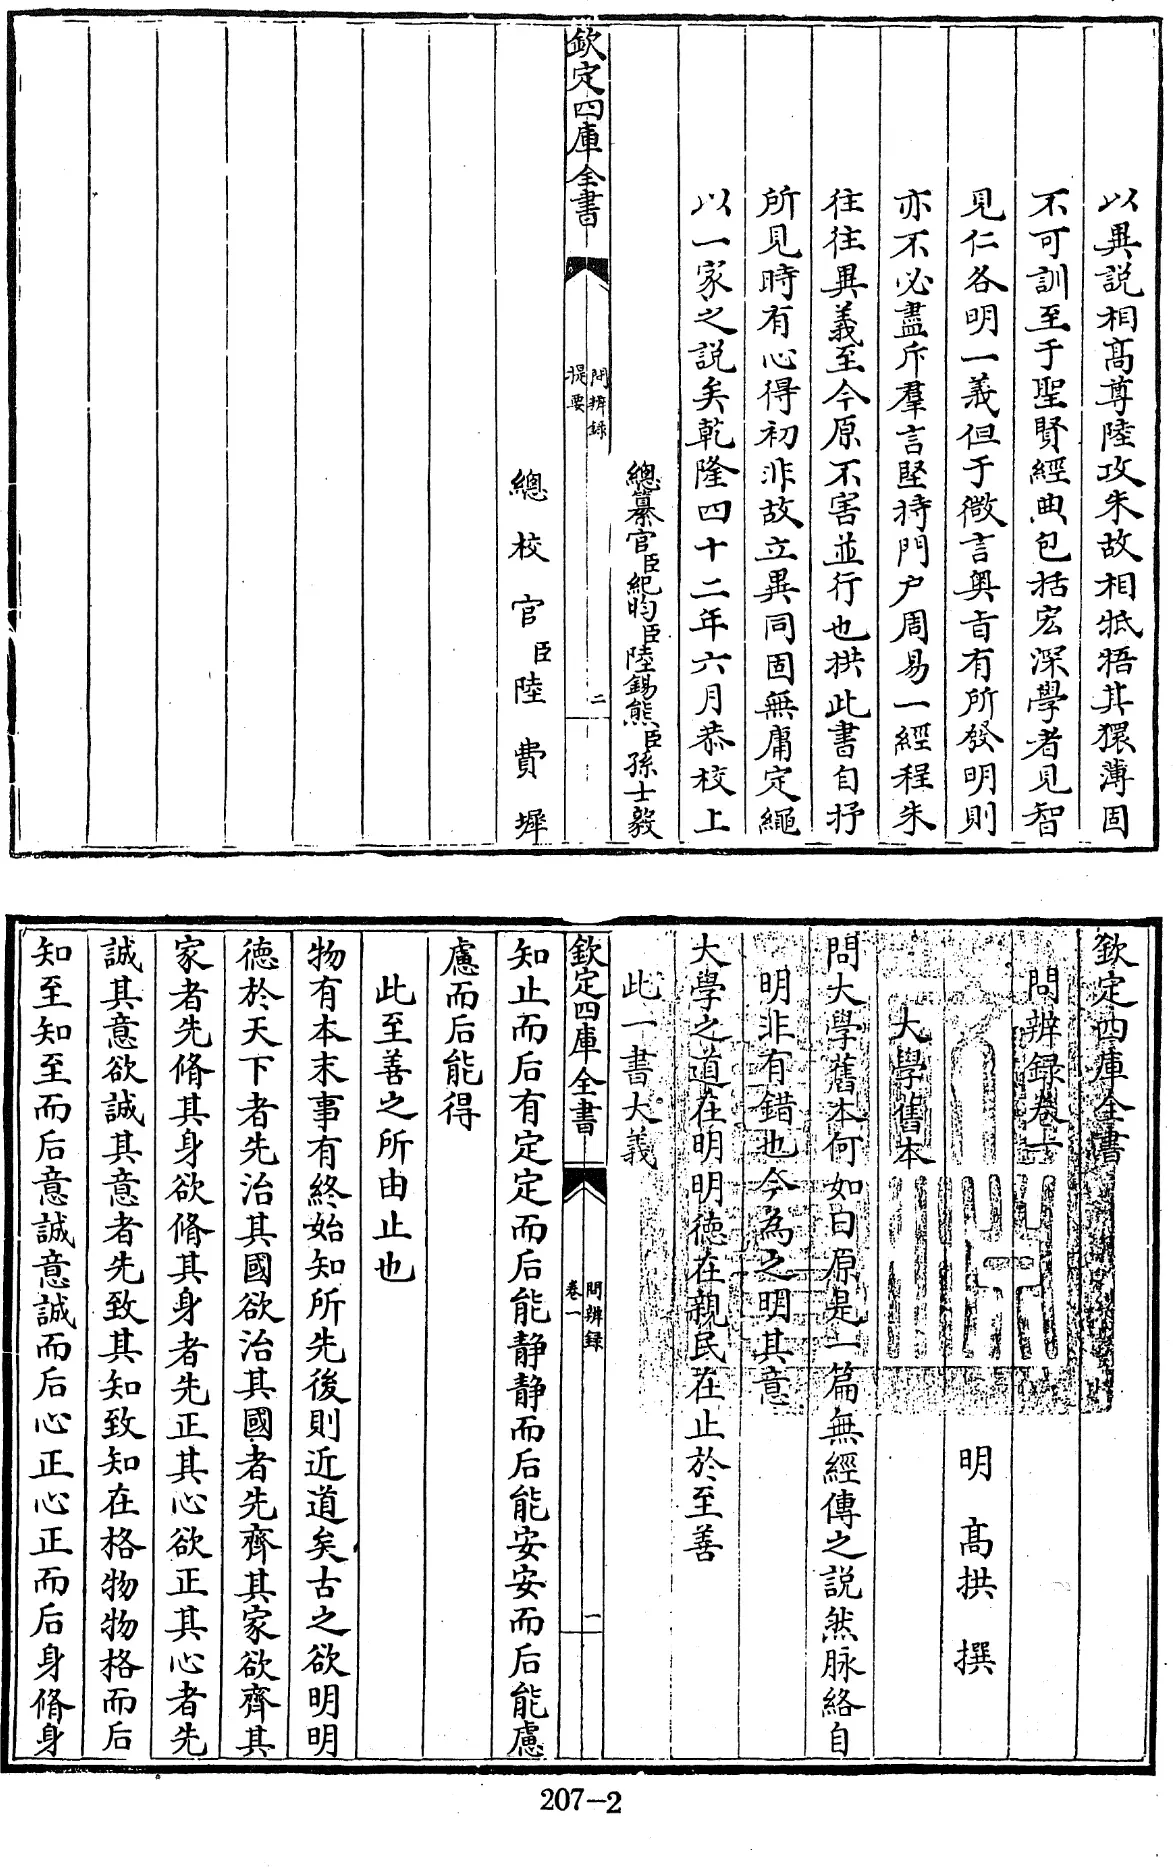 以異説相髙尊陸攻朱故相牴牾其獧薄固
不可訓至于聖賢經典包括宏深學者見智
見仁各明一義但于微言奥㫖有所發明則
亦不必盡斥羣言堅持門户周易一經程朱
往往異義至今原不害並行也拱此書自抒
所見時有心得初非故立異同固無庸定繩
以一家之説矣乾隆四十二年六月恭校上
總纂官臣紀昀臣陸錫熊臣孫士毅
欽定四庫全書
問辨録
提要
二
總校官臣陸費墀
欽定四庫全書
問辨録卷一
明髙拱撰
大學舊本
問大學舊本何如曰原是一篇無經傳之説然脉絡自
明非有錯也今為之明其意
大學之道在明明徳在親民在止於至善
此一書大義
欽定四庫全書
問辨録
卷一
一
知止而后有定定而后能静静而后能安安而后能慮
慮而后能得
此至善之所由止也
物有本末事有終始知所先後則近道矣古之欲明明
徳於天下者先治其國欲治其國者先齊其家欲齊其
家者先脩其身欲脩其身者先正其心欲正其心者先
誠其意欲誠其意者先致其知致知在格物物格而后
知至知至而后意誠意誠而后心正心正而后身脩身
207-2